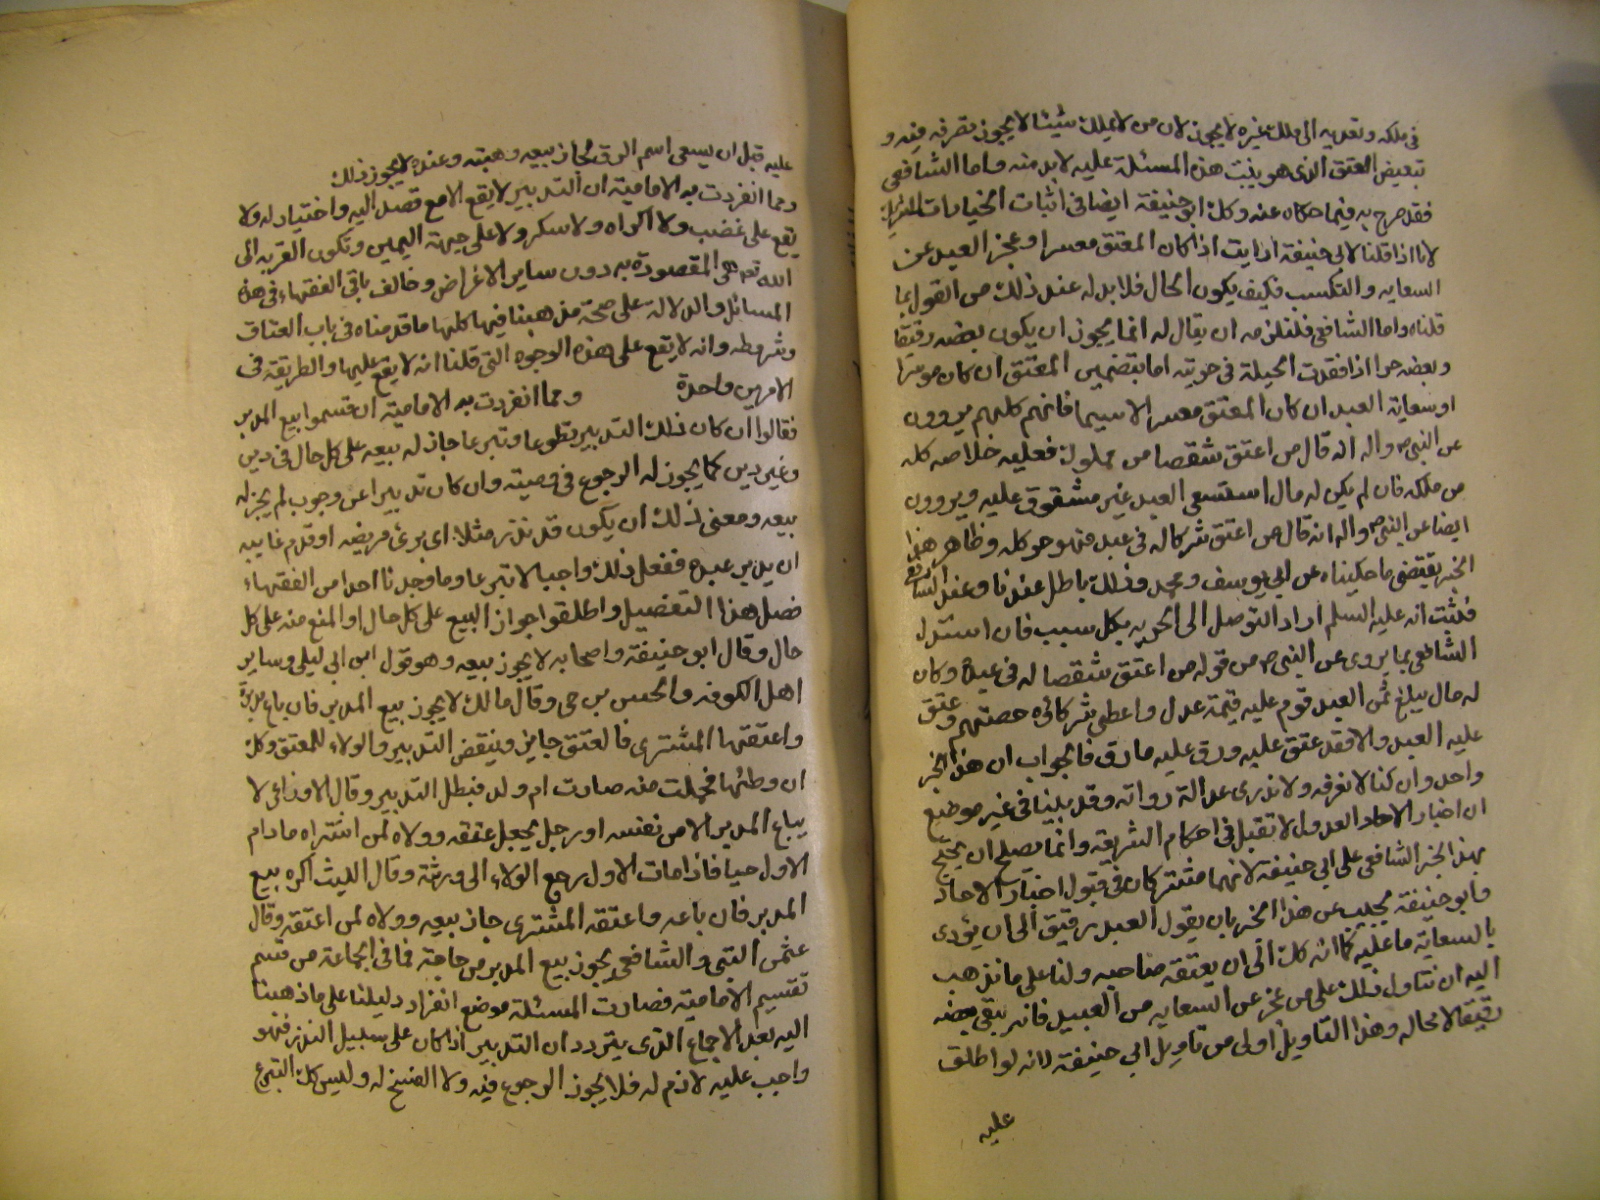 في ملكه وتعديه الى ملك غيره لا يجوز لان من لا يملك شيئا لا يجوز تصرفه فيه و
تبعيض العتق الذى هو يثبت هذه المسئلة عليه لا بد منه واما الشافعي
فقد صرح به فيما حكاه عنه وكل ابو حنيفة ايضا في اثبات الخيارات
لانا اذا قلنا لابي حنيفة ارايت اذا كان المعتق معسرا وعجز العبد عن
السعايه والتكسب فكيف يكون الحال فلا بد له عند ذلك من القول بما
قلناه واما الشافعي فلتلزمه ان يقال له انما يجوز ان يكون بعضه رقيقا
وبعضه حرا اذا فقدت الحيلة في حريته اما بتضمين المعتق ان كان موسرا
او سعاية العبد ان كان المعتق معسرا لا سيما فانهم كلهم يروون
عن النبي ص واله انه قال من اعتق شقصا من مملوك فعليه خلاصه كله
من ملكه فان لم يكن له مال استسعى العبد غير مشقوق عليه ويروون
ايضا عن النبي ص واله انه قال من اعتق شركا له في عبد فهو حر كله وظاهر هذا
الخبر يقتضي ما حكيناه عن ابي يوسف ومحمد وذلك باطل عندنا وعند الشافعي
فثبت انه عليه السلم اراد التوصل الى الحريه بكل سبب فان استدل
الشافعي بما يروى عن النبي ص من قوله من اعتق شقصا له في عبد وكان
له مال يبلغ ثمن العبد قوم عليه قيمة عدل واعطى شركائه حصتهم وعتق
عليه العبد والا فقد عتق عليه ورق عليه ما رق فالجواب ان هذا الخبر
واحد وان كنا لا نعرفه ولا ندرى عدالة رواته وقد بينا في غير موضع
ان اخبار الاحاد العدول لا تقبل في احكام الشريعه وانما يصلح ان يحتج
بهذا الخبر الشافعي على ابي حنيفة لانهما مشتركان في قبول اخبار الاحاد
وابو حنيفة يجيب عن هذا الخبر بان يقول العبد رقيق الى ان يؤدى
بالسعاية ما عليه كما انه كذلك الى ان يعتقه صاحبه ولنا على ما نذهب
اليه ان نتاول ذلك على من عجز عن السعايه من العبيد فانه يبقى بعضه
رقيقا لا محاله وهذا التاويل اولى من تاويل ابي حنيفة لانه لو اطلق
عليه
عليه قبل ان يسعى اسم الرق لجاز بيعه وهبته وعنده لا يجوز ذلك
ومما انفردت به الامامية ان التدبير لا يقع الا مع قصد اليه واختيار له ولا
يقع على غضب ولا اكراه ولا سكر ولا على جهة اليمين وتكون القربه الى
الله تعالى هي المقصودة به دون ساير الاغراض وخالف باقي الفقهاء في هذه
المسائل والدلالة على صحة مذهبنا فيها كلها ما قدمناه في باب العتاق
وشروطه وانه لا يقع على هذه الوجوه التي قلنا انه لا يقع عليها والطريقة في
الامرين واحدة ومما انفردت به الامامية ان قسموا بيع المدبر
فقالوا ان كان ذلك التدبير تطوعا وتبرعا جاز له بيعه على كل حال في دين
وغير دين كما يجوز له الرجوع في وصيته وان كان تدبيرا عن وجوب لم يجز له
بيعه ومعنى ذلك ان يكون قد نذر مثلا ان برئ مريضه او قدم غايبه
ان يدبر عبده ففعل ذلك واجبا لا تبرعا وما وجدنا احدا من الفقهاء
فصل هذا التفصيل واطلقوا جواز البيع على كل حال او المنع منه على كل
حال وقال ابو حنيفة واصحابه لا يجوز بيعه وهو قول ابن ابي ليلى وساير
اهل الكوفه والحسن بن حى وقال مالك لا يجوز بيع المدبر فان باع مدبرة
واعتقها المشترى فالعتق جايز وينقض التدبير والولاء للمعتق وكذلك
ان وطئها فحملت منه صارت ام ولد فبطل التدبير وقال الاوزاعي لا
يباع المدبر الا من نفسه او رجل يجعل عتقه وولاه لمن اشتراه ما دام
الاول حيا فاذا مات الاول رجع الولاء الى ورثته وقال الليث اكره بيع
المدبر فان باعه واعتقه المشترى جاز بيعه وولاه لمن اعتقه وقال
عثمن البتي والشافعي يجوز بيع المدبر من حاجة فما في الجماعة من قسم
تقسيم الامامية فصارت المسئلة موضع انفراد دليلنا على ما ذهبنا
اليه بعد الاجماع الذى يتردد ان التدبير اذا كان على سبيل النذر فهو
واجب عليه لازم له فلا يجوز الرجوع فيه ولا الفسخ له وليس كذلك التبرع